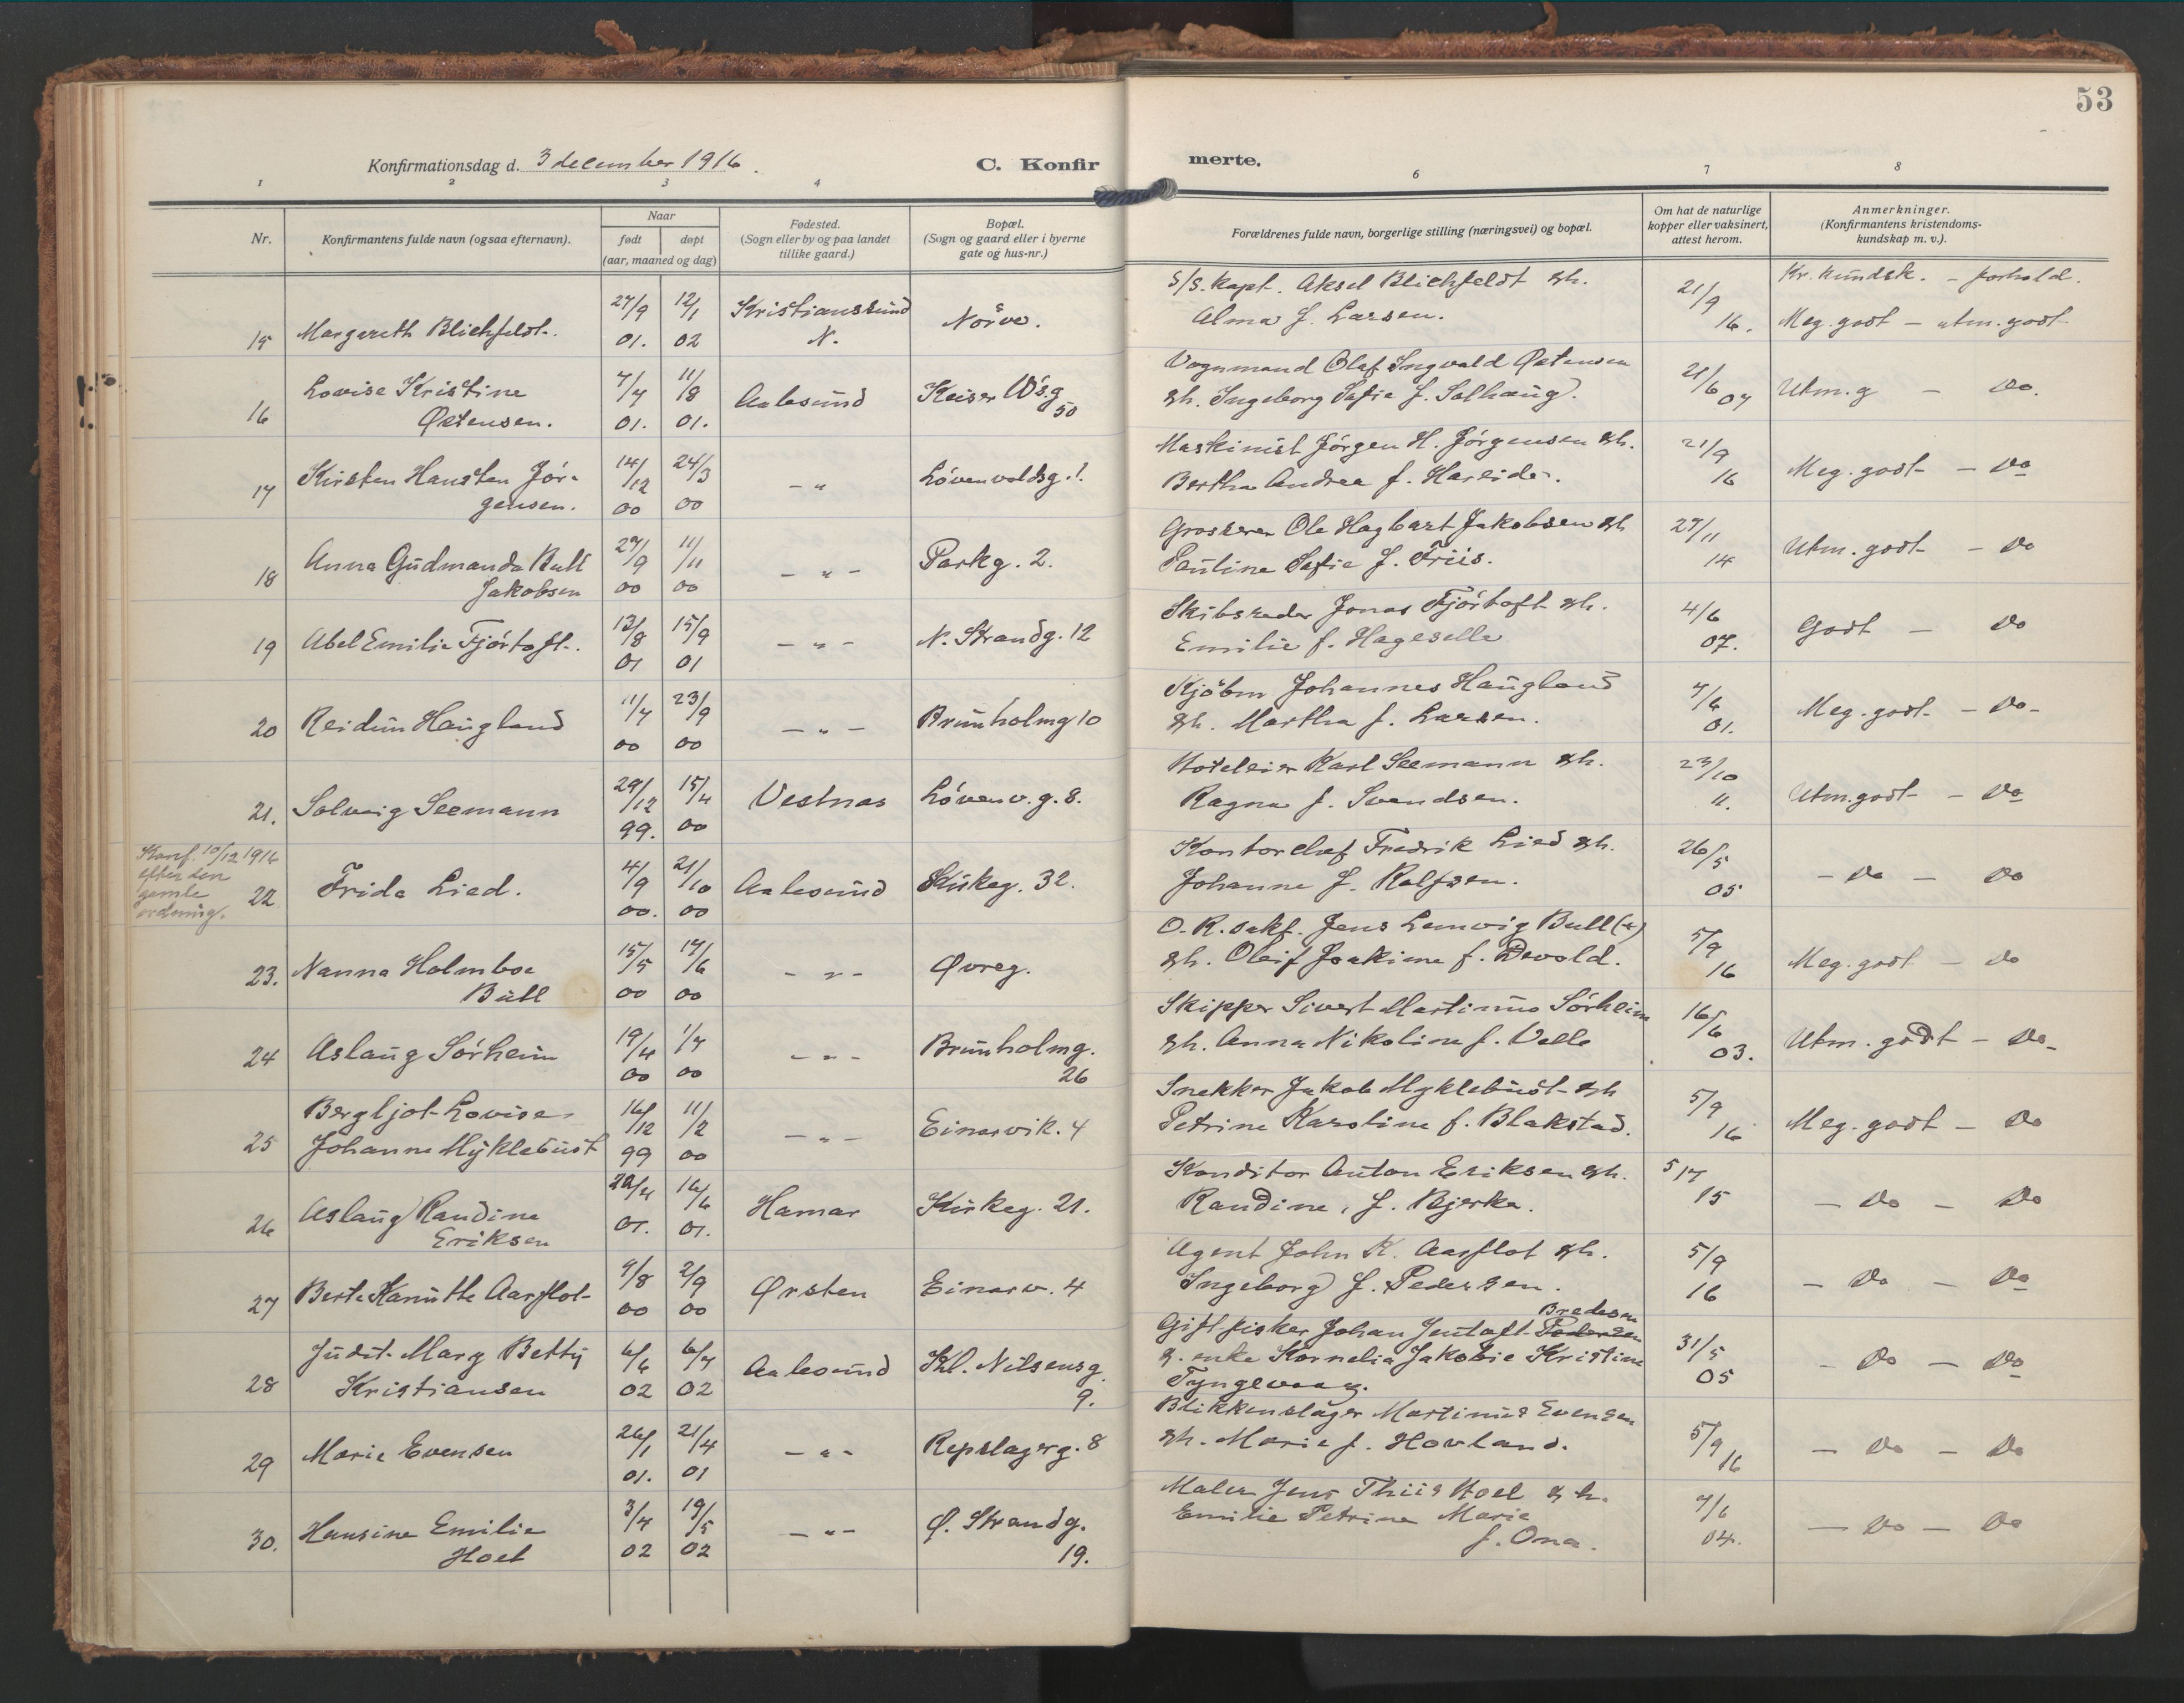 53
Konfirmationsdag d. 3 december 1916.
C. Konfir
merte.
1 2 3 4 6 7 8
Nr.
Konfirmantens fulde navn (ogsaa efternavn).
Naar
født døpt
(aar, maaned og dag)
Fødested.
(Sogn eller by og paa landet
tillike gaard.)
Bopæl.
(Sogn og gaard eller i byerne
gate og hus-nr.)
Forældrenes fulde navn, borgerlige stilling (næringsvei) og bopæl.
Om hat de naturlige
kopper eller vaksinert,
attest herom.
Anmerkninger.
(Konfirmantens kristendoms-
kundskap m. v.).
Kr. kundsk. - forhold.
15 Margareth Blichfeldt. 27/9 01. 12/1 02 Kristianssund N. Nørve.
S/S. kapt. Aksel Blichfeldt &h.
Alma f. Larsen.
21/9 16. Meg. godt - utm. godt.
16 Lovise Kristine
Østensen. 7/7 01. 11/8 01. Aalesund Keiser W's.g 50
Vognmand Olaf Ingvald Østensen
&h. Ingeborg Sofie f. Solhaug.
21/6 07 Utm. g - do.
17 Kirsten Hansten Jør-
gensen. 14/12 00 24/3 00 - " Løvenvoldsg. 1.
Maskinist Jørgen H. Jørgensen &h.
Bertha Andrea f. Hareide.
21/9 16 Meg. godt - do
18 Anna Gudmanda Bull
Jakobsen 27/9 00 11/11 00 - " - Parkg. 2.
Grosserer Ole Hagbart Jakobsen &h
Pauline Sofie f. Friis.
27/11 14 Utm. godt - do
19 Abel Emilie Fjørtoft. 13/8 01 15/9 01 - " - N. Strandg. 12
Skibsreder Jonas Fjørtoft &h.
Emilie f. Hageselle
4/6 07. Godt - do
20 Reidun Haugland 11/7 00 23/9 00 - " - Brunholmg 10
Kjøbm Johannes Haugland
&h. Martha f. Larsen.
7/6 01. Meg. godt - do -
21. Solveig Seemann 29/12 99. 15/4 00 Vestnas Løvenv. g. 8.
Hoteleier Karl Seemann &h.
Ragna f. Svendsen.
23/10 11. Utm. godt - do
Konf. 10/12 1916
efter den
gamle
ordning.
22 Frida Lied. 4/9 00. 21/10 00 Aalesund Kirkeg. 32.
Kontorchef Fredrik Lied &h.
Johanne f. Rolfsen.
26/5 05 - do - do
23. Nanna Holmboe
Bull 15/5 00 17/6 00 - " - Øvreg.
O. R. sakf. Jens Lemvig Bull (+)
&h. Oleif Joakime f. Devold.
5/9 16 Meg. godt - do
24 Aslaug Sørheim 19/4 00 1/7 00 - " - Brunholmg. 26
Skipper Sivert Martinus Sørheim
&h. Anna Nikoline f. Velle
16/6 03. Utm. godt - do -
25 Bergljot Lovise
Johanne Myklebust 16/12 99 11/2 00 - " - Einarvik. 4
Snekker Jakob Myklebust &h
Petrine Karoline f. Blakstad.
5/9 16 Meg. godt - do
26 Aslaug Randine
Eriksen 22/4 01. 16/6 01. Hamar Kirkeg. 21.
Konditor Anton Eriksen &h.
Randine, f. Bjerke.
5/7 15 - do - do
27 Berte Kanutte Aarflot 9/8 00 2/9 00 Ørsten Einarv. 4
Agent John K. Aarflot &h.
Ingeborg f. Pedersen.
5/9 16 - do - do
28 Judit Mary Betty
Kristiansen 6/6 02 6/7 02 Aalesund Kl. Nilsensg 9.
Bredesen
Gift fisker Johan Jentoft Pedersen
& enke Kornelia Jakobie Kristine
Tyngevaag.
31/5 05 - do - do
29 Marie Evensen 26/1 01. 21/4 01 - " - Repslagerg. 8
Blikkenslager Martinus Evensen
&h. Marie f. Hovland.
5/9 16 - do - do
30. Hansine Emilie
Hoel 3/4 02 19/5 02 - " - Ø. Strandg. 19.
Maler Jens Thiis Hoel & h.
Emilie Petrine Marie
f. Ona.
7/6 04. - do - do